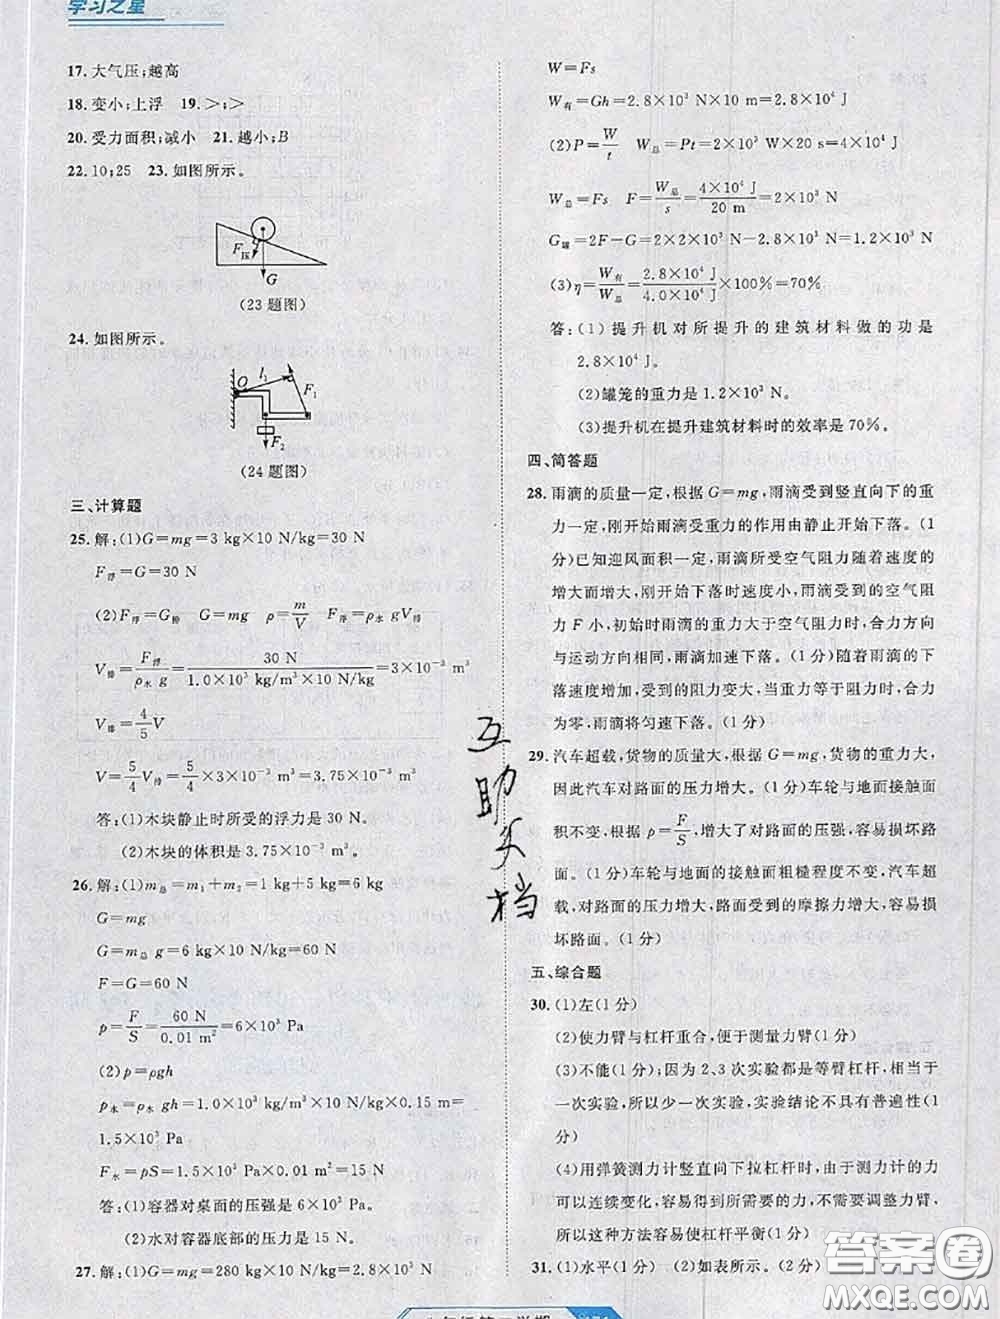 学习之星
17.大气压;越高
18.变小;上浮 19.>;>
20.受力面积;减小 21.越小;B
22.10;25 23.如图所示。
F压
G
(23题图)
24.如图所示。
O l₁ F₁
F₂
(24题图)
三、计算题
25.解:(1)G=mg=3 kg×10 N/kg=30 N
F浮=G=30 N
(2)F浮=G排 G=mg ρ=m/V F浮=ρ水 gV排
V排=F浮/ρ水 g=30 N/1.0×10³ kg/m³×10 N/kg=3×10⁻³ m³
V排=4/5V
V=5/4V排=5/4×3×10⁻³ m³=3.75×10⁻³ m³
答:(1)木块静止时所受的浮力是 30 N。
(2)木块的体积是 3.75×10⁻³ m³。
26.解:(1)m总=m₁+m₂=1 kg+5 kg=6 kg
G=mg
G=m总 g=6 kg×10 N/kg=60 N
F=G=60 N
p=F/S=60 N/0.01 m²=6×10³ Pa
(2)p=ρgh
p水=ρ水 gh=1.0×10³ kg/m³×10 N/kg×0.15 m=
1.5×10³ Pa
F水=pS=1.5×10³ Pa×0.01 m²=15 N
答:(1)容器对桌面的压强是 6×10³ Pa。
(2)水对容器底部的压力是 15 N。
27.解:(1)G=mg=280 kg×10 N/kg=2.8×10³ N
W=Fs
W有=Gh=2.8×10³ N×10 m=2.8×10⁴ J
(2)P=W/t W总=Pt=2×10³ W×20 s=4×10⁴ J
W总=Fs F=W总/s=4×10⁴ J/20 m=2×10³ N
G罐=2F-G=2×2×10³ N-2.8×10³ N=1.2×10³ N
(3)η=W有/W总=2.8×10⁴ J/4.0×10⁴ J×100%=70%
答:(1)提升机对所提升的建筑材料做的功是
2.8×10⁴ J。
(2)罐笼的重力是 1.2×10³ N。
(3)提升机在提升建筑材料时的效率是 70%。
四、简答题
28.雨滴的质量一定,根据 G=mg,雨滴受到竖直向下的重
力一定,刚开始雨滴受重力的作用由静止开始下落。(1
分)已知迎风面积一定时,雨滴所受空气阻力随着速度的
增大而增大,刚开始下落时速度小,雨滴受到的空气阻
力 F 小,初始时雨滴的重力大于空气阻力,合力方向
与运动方向相同,雨滴加速下落。(1分)随着雨滴的下
落速度增加,受到的阻力变大,当重力等于阻力时,合力
为零,雨滴将匀速下落。(1分)
29.汽车超载,货物的质量大,根据 G=mg,货物的重力大,
因此汽车对路面的压力增大。(1分)车轮与地面接触面
积不变,根据 p=F/S,增大了对路面的压强,容易损坏路
面。(1分)车轮与地面的接触面粗糙程度不变,汽车超
载,对路面的压力增大,路面受到的摩擦力增大,容易损
坏路面。(1分)
五、综合题
30.(1)左(1分)
(2)使力臂与杠杆重合,便于测量力臂(1分)
(3)不能(1分);因为2、3次实验都是等臂杠杆,相当于
一次实验,所以少一次实验,实验结论不具有普遍性(1
分)
(4)用弹簧测力计竖直向下拉杠杆时,由于测力计的力
可以连续变化,容易得到所需要的力,不需要调整力臂,
所以这种方法容易使杠杆平衡(1分)
31.(1)水平(1分) (2)如表所示。(2分)
互助头档
答案圈